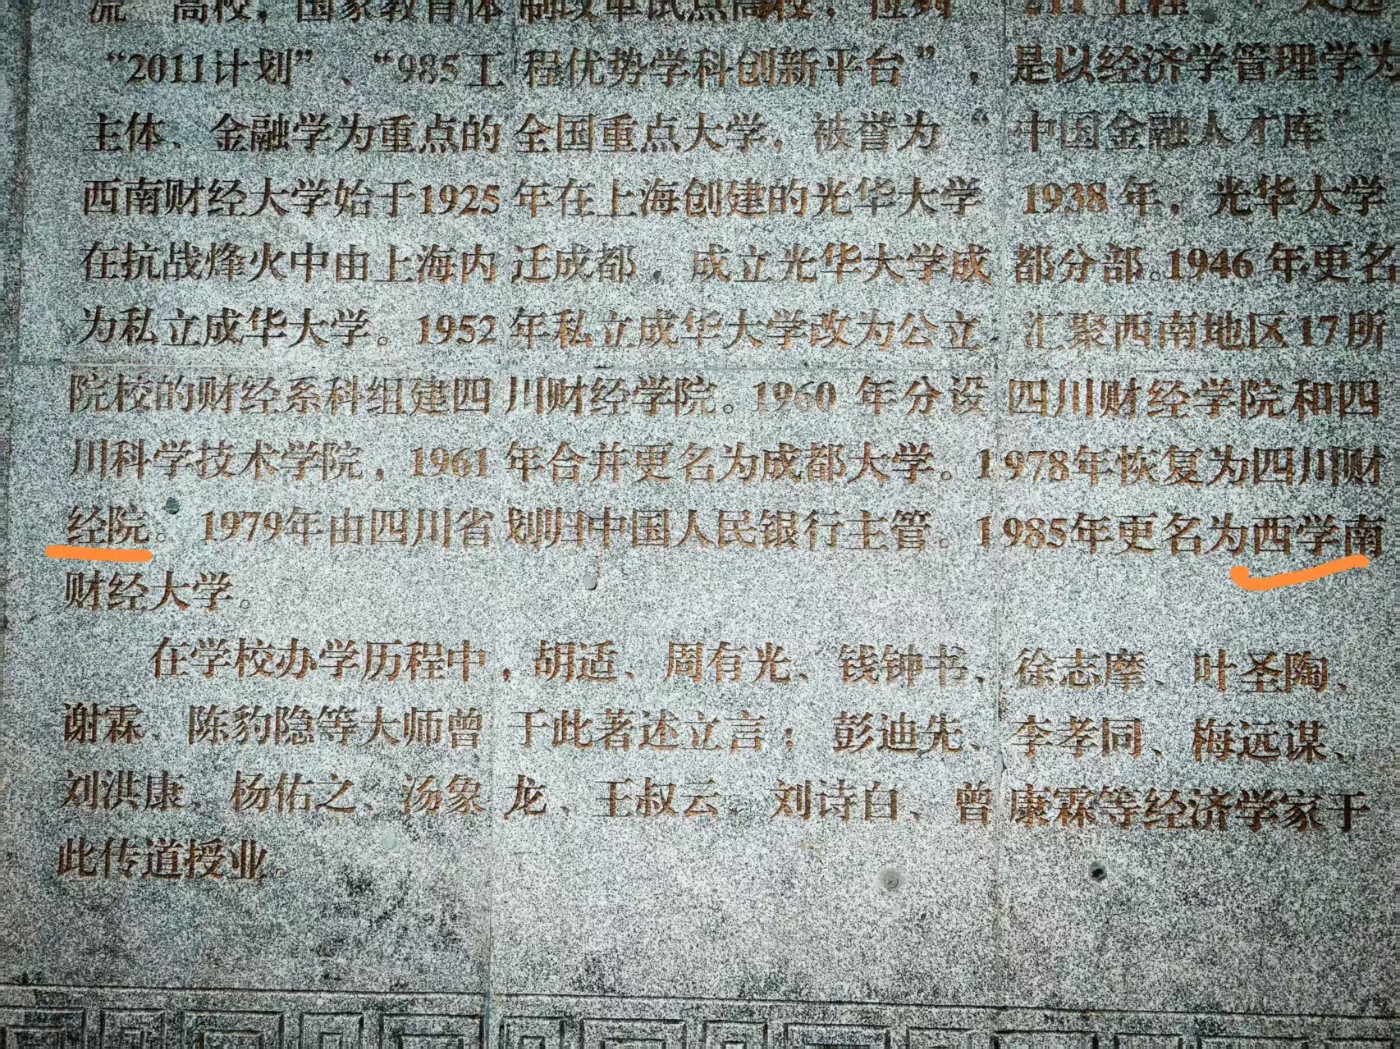 流”高校，国家教育体制改革试点高校，位列“211工程”
“2011计划”、“985工程优势学科创新平台”，是以经济学管理学为
主体、金融学为重点的全国重点大学，被誉为“中国金融人才库”
西南财经大学始于1925年在上海创建的光华大学 1938年，光华大学
在抗战烽火中由上海内迁成都，成立光华大学成都分部。1946年更名
为私立成华大学。1952年私立成华大学改为公立，汇聚西南地区17所
院校的财经系科组建四川财经学院。1960年分设四川财经学院和四
川科学技术学院，1961年合并更名为成都大学。1978年恢复为四川财
经院。1979年由四川省划归中国人民银行主管。1985年更名为西学南
财经大学。
在学校办学历程中，胡适、周有光、钱钟书、徐志摩、叶圣陶、
谢霖、陈豹隐等大师曾于此著述立言；彭迪先、李孝同、梅远谋、
刘洪康、杨佑之、汤象龙、王叔云、刘诗白、曾康霖等经济学家于
此传道授业。